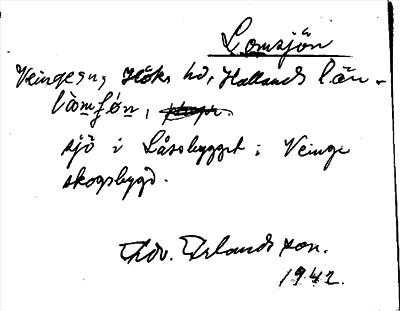 Lomsjön
Veinge sn, Höks hd, Hallands län.
lòmʃǿn,
sjö i Låssbygget i Veinge
skogsbygd.
Edv. Erlandsson.
1942.